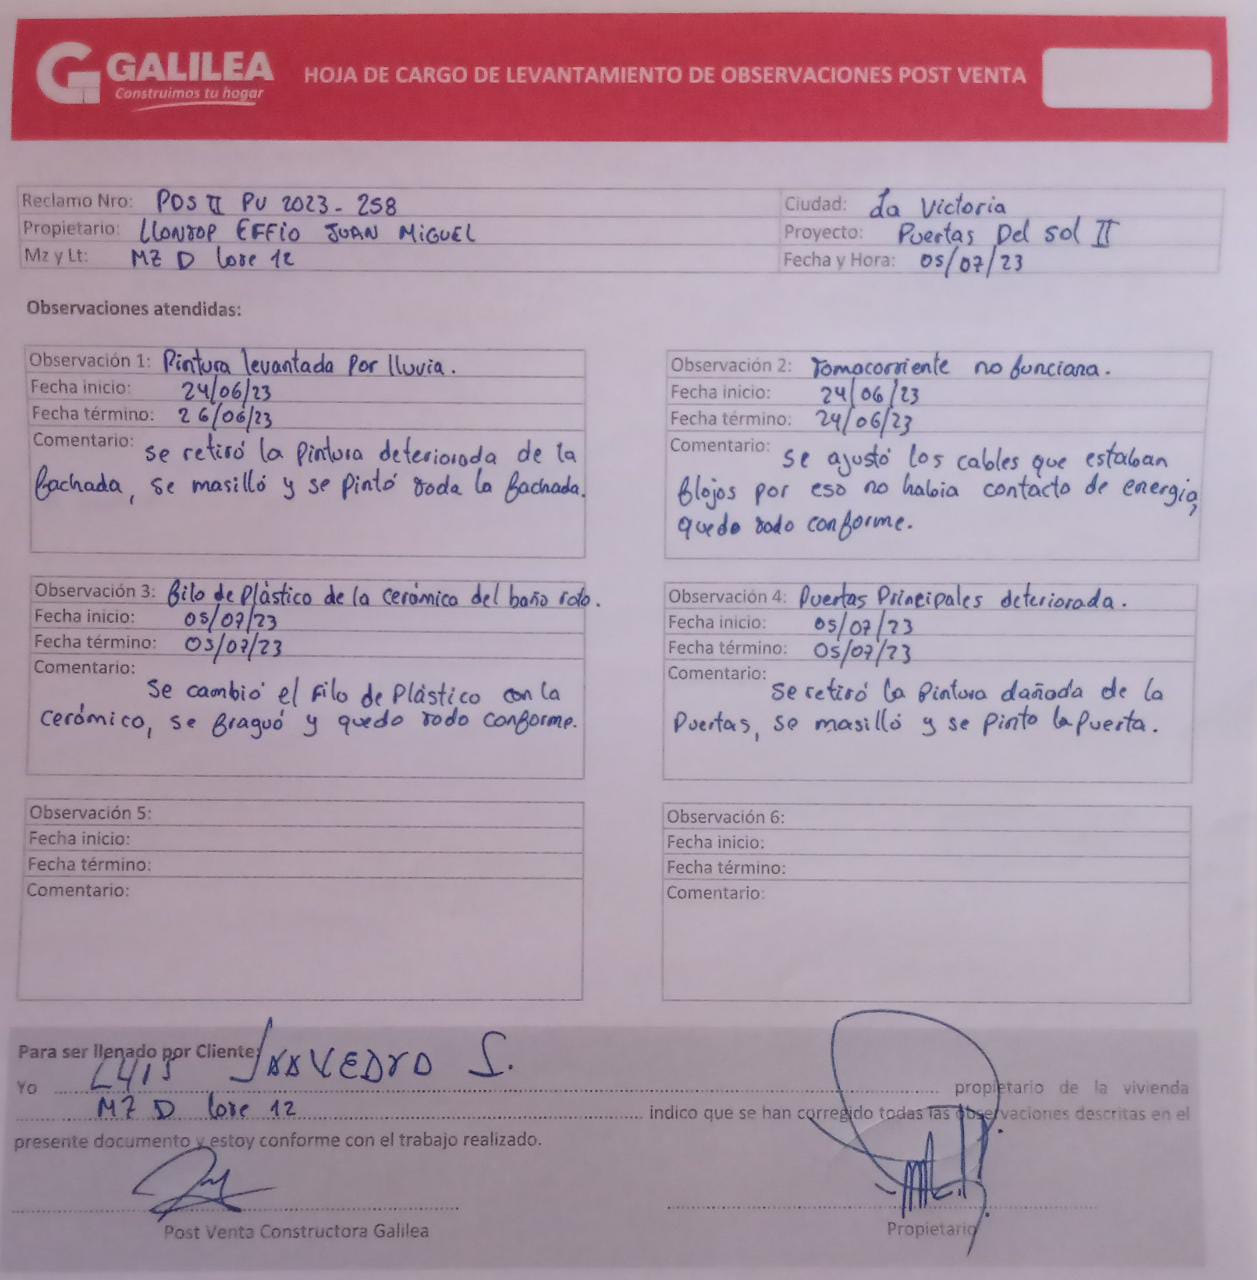 GALILEA
Construimos tu hogar
HOJA DE CARGO DE LEVANTAMIENTO DE OBSERVACIONES POST VENTA
Reclamo Nro: PDS II PV 2023 - 258
Ciudad: La Victoria
Propietario: LLONTOP EFFIO JUAN MIGUEL
Proyecto: Puertas Del sol II
Mz y Lt: MZ D lote 12
Fecha y Hora: 05/07/23
Observaciones atendidas:
Observación 1: Pintura levantada por lluvia.
Fecha inicio: 24/06/23
Fecha término: 26/06/23
Comentario: se retiró la pintura deteriorada de la
fachada, se masilló y se pintó toda la fachada.
Observación 2: Tomacorriente no funciana.
Fecha inicio: 24/06/23
Fecha término: 24/06/23
Comentario: se ajustó los cables que estaban
flojos por eso no habia contacto de energia,
quedo todo conforme.
Observación 3: filo de plástico de la cerámica del baño roto.
Fecha inicio: 05/07/23
Fecha término: 05/07/23
Comentario: se cambió el filo de plástico con la
cerámico, se fraguó y quedo todo conforme.
Observación 4: Puertas Principales deteriorada.
Fecha inicio: 05/07/23
Fecha término: 05/07/23
Comentario: se retiró la pintura dañada de la
puertas, se masilló y se pinto la puerta.
Observación 5:
Fecha inicio:
Fecha término:
Comentario:
Observación 6:
Fecha inicio:
Fecha término:
Comentario:
Para ser llenado por Cliente:
Yo LUIS SAAVEDRO S. propietario de la vivienda
MZ D lote 12 indico que se han corregido todas las observaciones descritas en el
presente documento y estoy conforme con el trabajo realizado.
Post Venta Constructora Galilea
Propietario